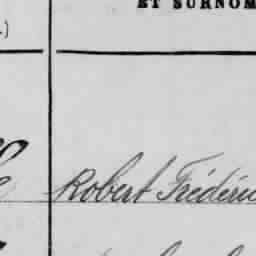 ET SURNOM
.)
Robert Frédéric